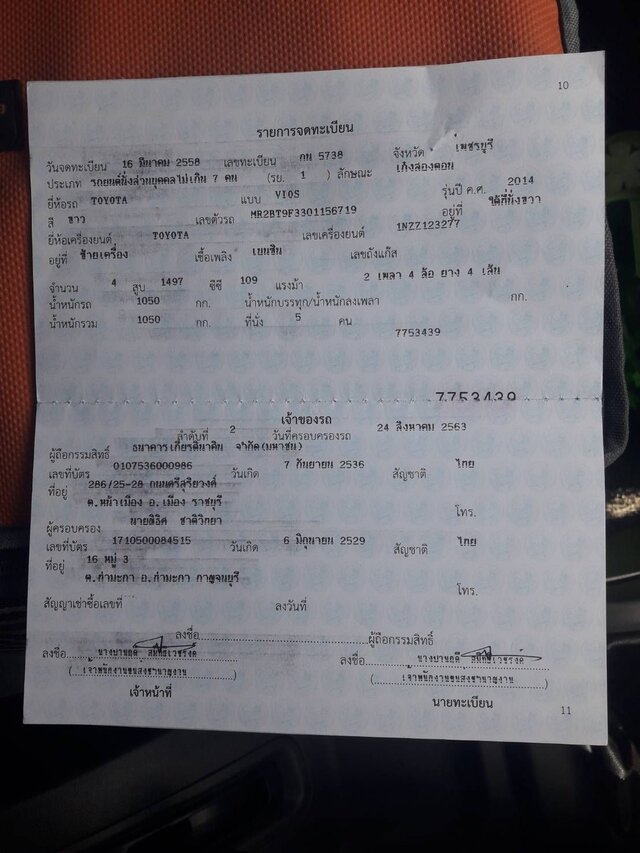 10
รายการจดทะเบียน
วันจดทะเบียน 16 มีนาคม 2558 เลขทะเบียน กน 5738 จังหวัด เพชรบุรี
ประเภท รถยนต์นั่งส่วนบุคคลไม่เกิน 7 คน (รย. 1 ) ลักษณะ เก๋งสองตอน
ยี่ห้อรถ TOYOTA แบบ VIOS รุ่นปี ค.ศ. 2014
สี ขาว เลขตัวรถ MR2BT9F3301156719 อยู่ที่ ใต้ที่นั่งขวา
ยี่ห้อเครื่องยนต์ TOYOTA เลขเครื่องยนต์ 1NZZ123277
อยู่ที่ ซ้ายเครื่อง เชื้อเพลิง เบนซิน เลขถังแก๊ส
จำนวน 4 สูบ 1497 ซีซี 109 แรงม้า 2 เพลา 4 ล้อ ยาง 4 เส้น
น้ำหนักรถ 1050 กก. น้ำหนักบรรทุก/น้ำหนักลงเพลา กก.
น้ำหนักรวม 1050 กก. ที่นั่ง 5 คน
7753439
7753439
เจ้าของรถ
ลำดับที่ 2 วันที่ครอบครองรถ 24 สิงหาคม 2563
ผู้ถือกรรมสิทธิ์ ธนาคารเกียรตินาคิน จำกัด(มหาชน)
เลขที่บัตร 0107536000986 วันเกิด 7 กันยายน 2536 สัญชาติ ไทย
ที่อยู่ 286/25-28 ถนนศรีสุริยวงศ์
ต.หน้าเมือง อ.เมือง ราชบุรี โทร.
ผู้ครอบครอง นายสิธิศ ชาติวิทยา
เลขที่บัตร 1710500084515 วันเกิด 6 มิถุนายน 2529 สัญชาติ ไทย
ที่อยู่ 16 หมู่ 3
ต.ท่ามะกา อ.ท่ามะกา กาญจนบุรี โทร.
สัญญาเช่าซื้อเลขที่ ลงวันที่
ลงชื่อ ผู้ถือกรรมสิทธิ์
ลงชื่อ ลงชื่อ
(เจ้าพนักงานขนส่งชำนาญงาน) (เจ้าพนักงานขนส่งชำนาญงาน)
เจ้าหน้าที่ นายทะเบียน
11